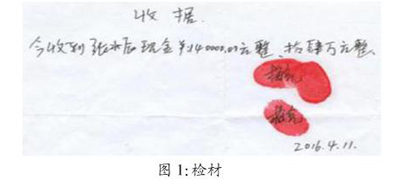 收据.
今收到张水辰现金¥140000.00元整、拾肆万元整、
2016.4.11.
图1:检材